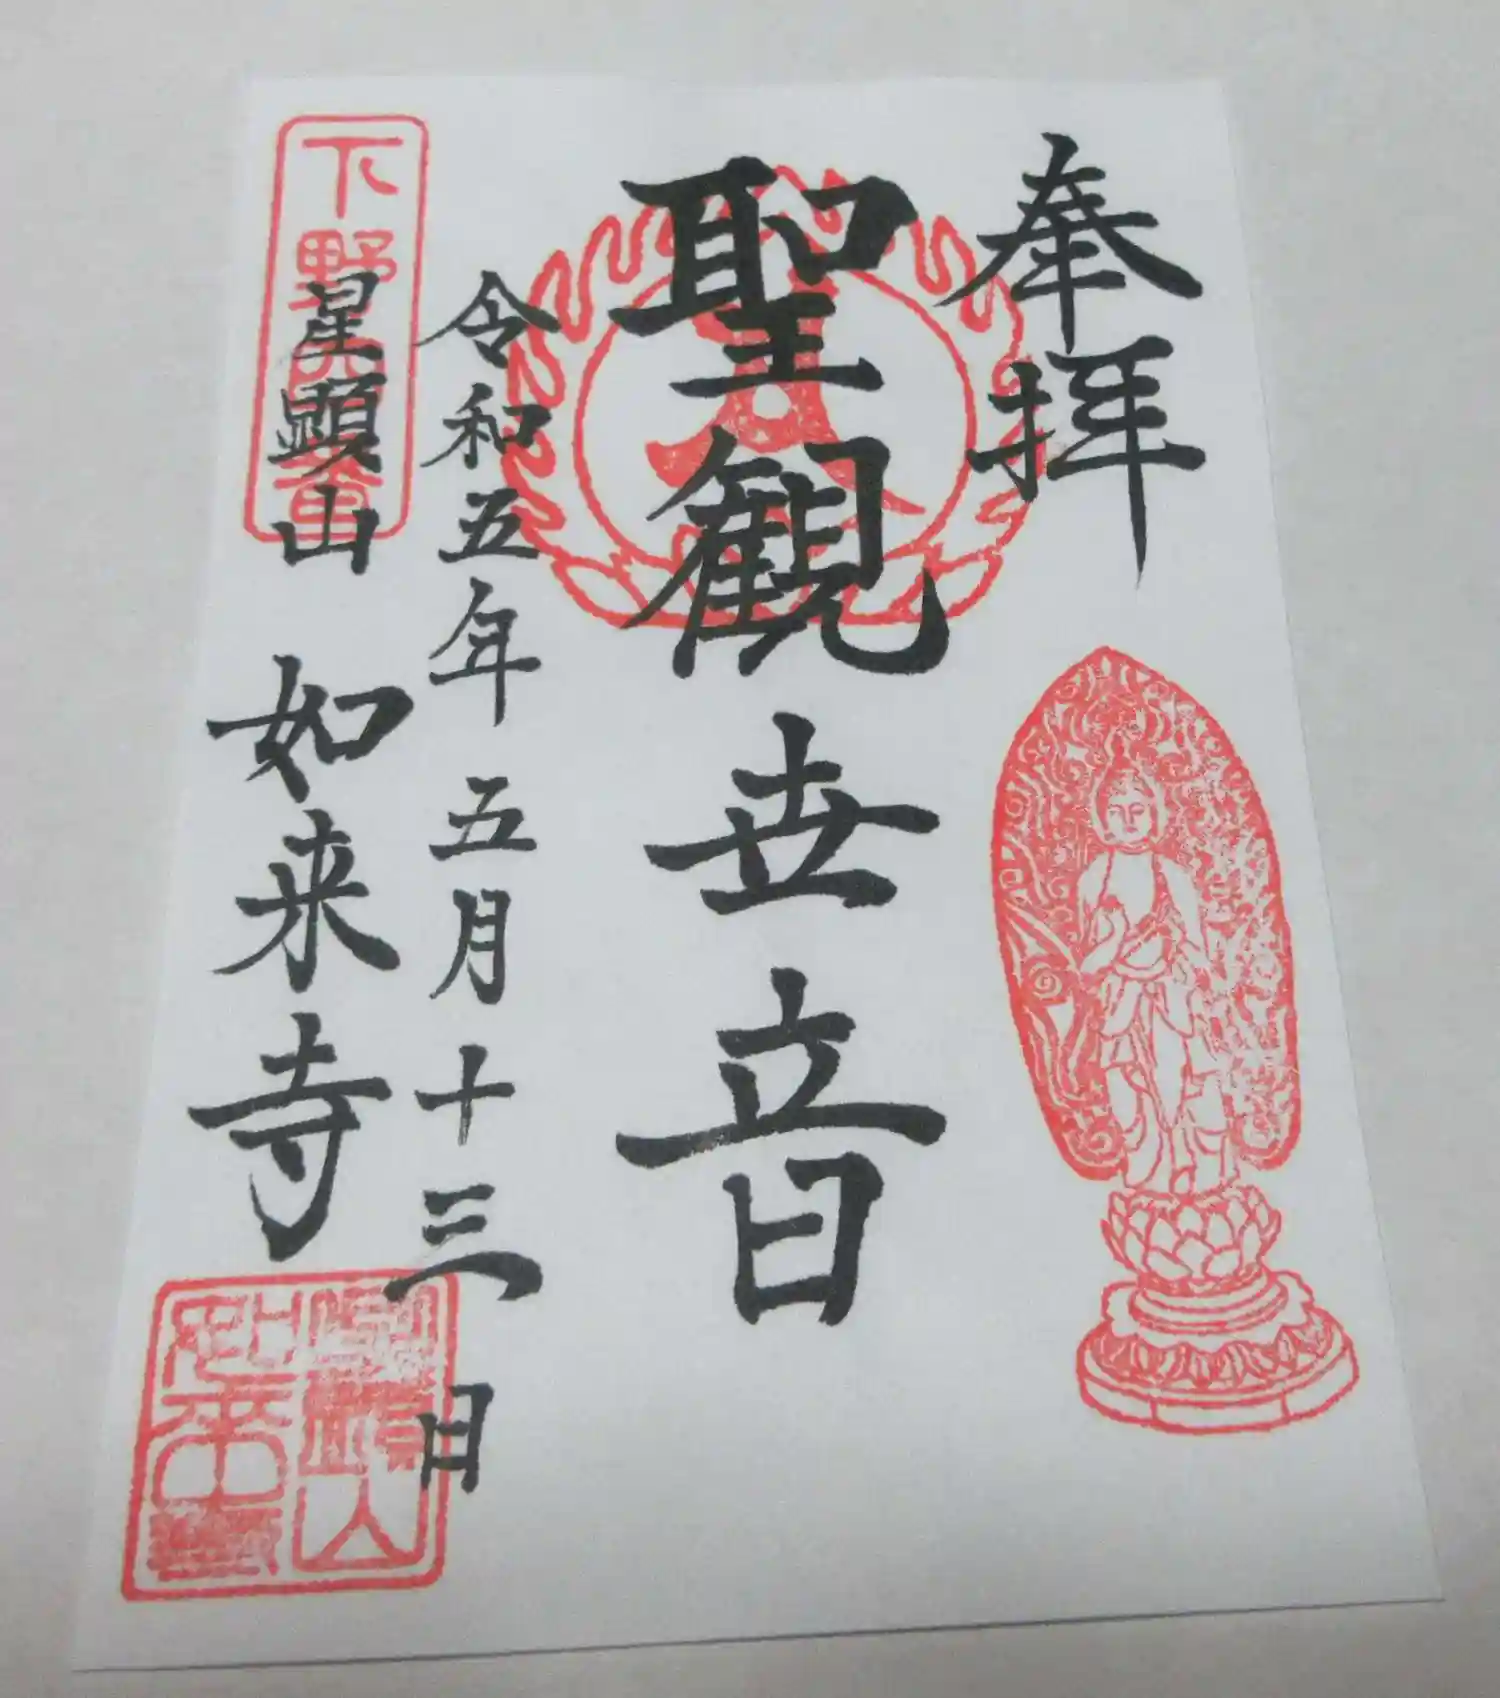 奉拝
聖觀世音
令和五年五月十三日
下野
星顕山 如来寺